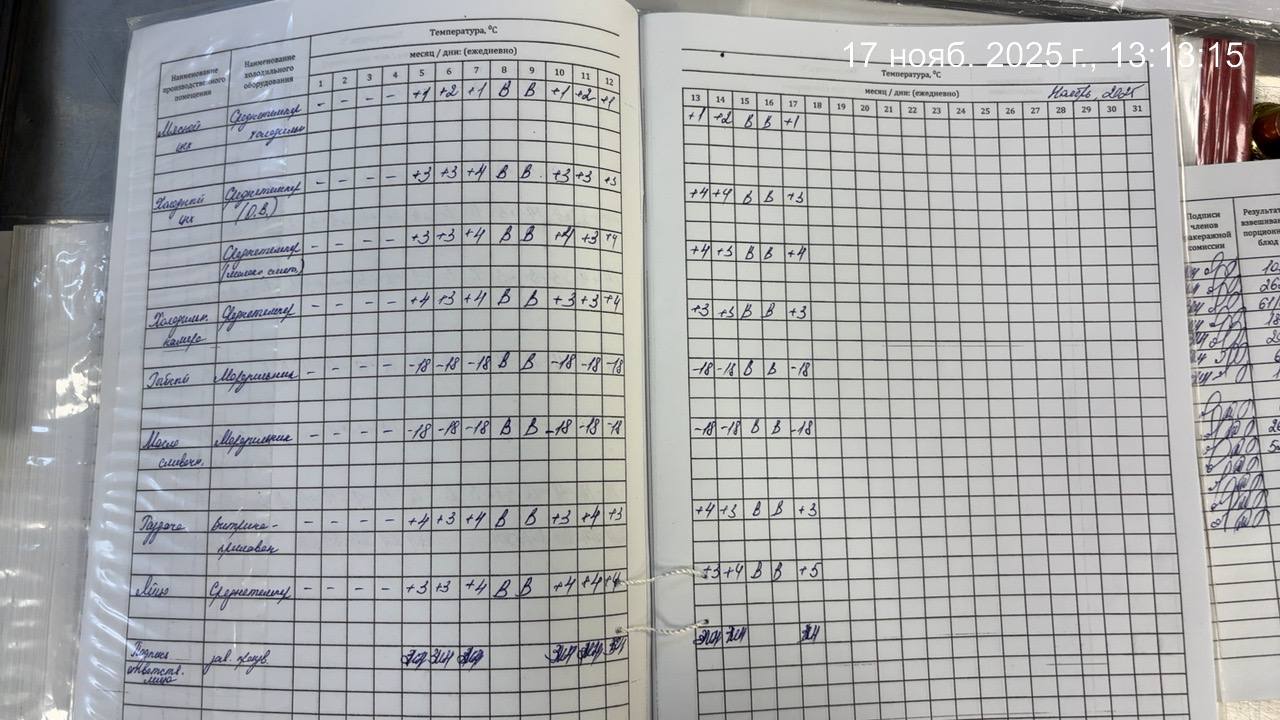 17 нояб. 2025 г., 13:13:15
Температура, °С
месяц / дни: (ежедневно)
Наименование производственного помещения
Наименование холодильного оборудования
1 2 3 4 5 6 7 8 9 10 11 12
Мясной цех Среднетемпер холодильн - - - - +1 +2 +1 В В +1 +2 +1
Холодный цех Среднетемпер (О.В.) - - - - +3 +3 +4 В В +3 +3 +3
Среднетемпер - - - - +3 +3 +4 В В +4 +3 +4
Холодильн. камера Среднетемпер - - - - +4 +3 +4 В В +3 +3 +4
Рыбный Морозильник - - - - -18 -18 -18 В В -18 -18 -18
Масло сливочн. Морозильник - - - - -18 -18 -18 В В -18 -18 -18
Раздача Витрина-прилавок - - - - +4 +3 +4 В В +3 +4 +3
Яйцо Среднетемпер - - - - +3 +3 +4 В В +4 +4 +4
Подпись ответств. лица зав. произв.
Температура, °С
месяц / дни: (ежедневно) Ноябрь, 2025
13 14 15 16 17 18 19 20 21 22 23 24 25 26 27 28 29 30 31
+1 +2 В В +1
+4 +4 В В +3
+4 +3 В В +4
+3 +3 В В +3
-18 -18 В В -18
-18 -18 В В -18
+4 +3 В В +3
+3 +4 В В +5
Подписи
членов
комиссии